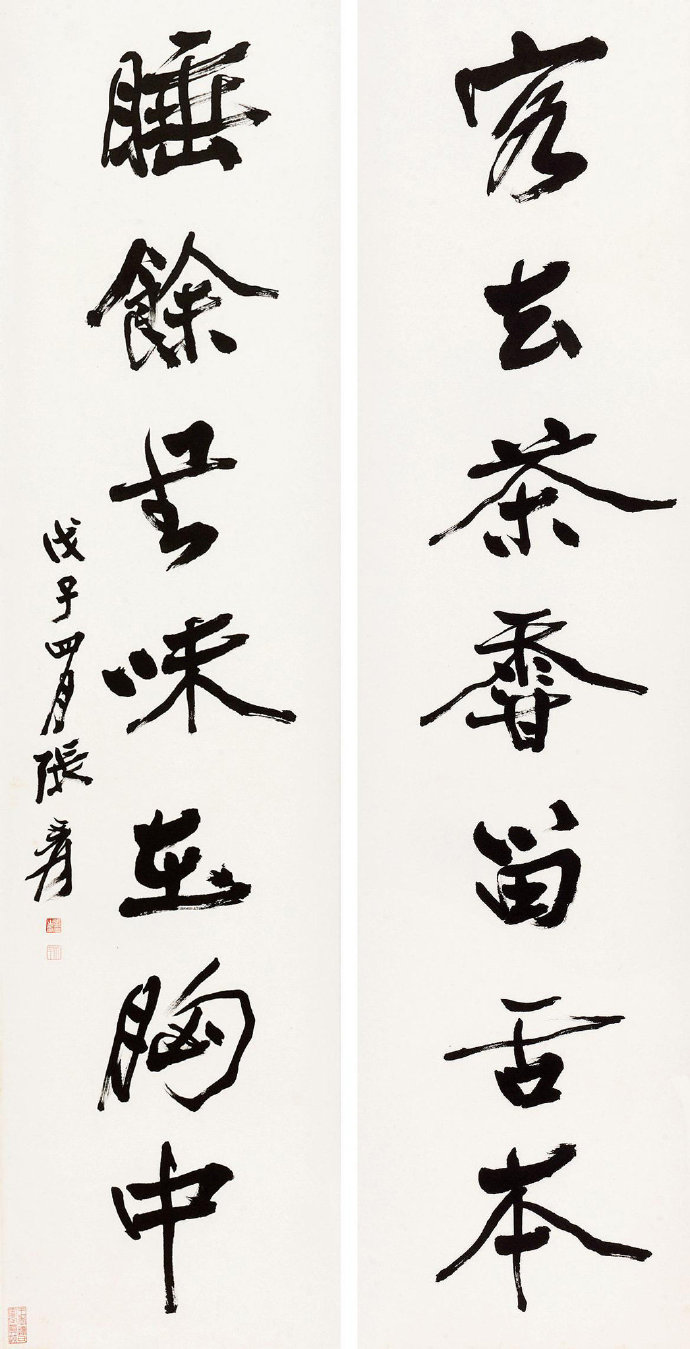 客去茶香留舌本
睡餘書味在胸中
戊子四月張爰